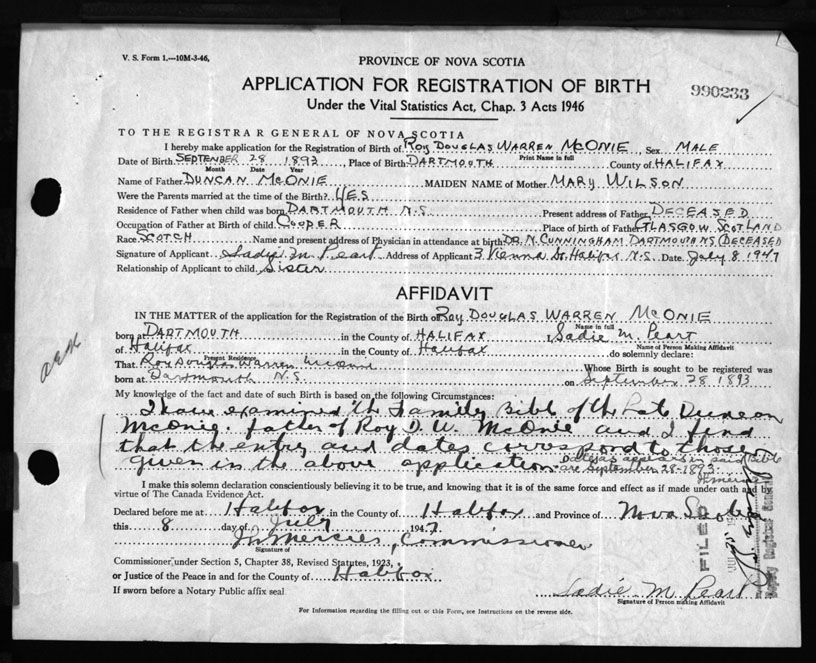 V. S. Form 1.—10M-3-46,
PROVINCE OF NOVA SCOTIA
APPLICATION FOR REGISTRATION OF BIRTH
990233
Under the Vital Statistics Act, Chap. 3 Acts 1946
TO THE REGISTRAR GENERAL OF NOVA SCOTIA
I hereby make application for the Registration of Birth of ROY DOUGLAS WARREN MCONIE, Sex MALE
Print Name in full
Date of Birth SEPTEMBER 28 1893, Place of Birth DARTMOUTH County of HALIFAX
Month Date Year
Name of Father DUNCAN MCONIE MAIDEN NAME of Mother MARY WILSON
Were the Parents married at the time of the Birth? YES
Residence of Father when child was born DARTMOUTH N.S. Present address of Father DECEASED
Occupation of Father at Birth of child COOPER Place of birth of Father GLASGOW SCOTLAND
Race SCOTCH Name and present address of Physician in attendance at birth DR. N. CUNNINGHAM DARTMOUTH NS (DECEASED
Signature of Applicant Sadie M. Peart Address of Applicant 3 Vienna St Halifax N.S. Date July 8 1947
Relationship of Applicant to child Sister
AFFIDAVIT
IN THE MATTER of the application for the Registration of the Birth of Roy DOUGLAS WARREN MCONIE
Name in full
born at DARTMOUTH in the County of HALIFAX I, Sadie M Peart
Name of Person Making Affidavit
of Halifax in the County of Halifax do solemnly declare:
Present Residence
That Roy Douglas Warren McOnie Whose Birth is sought to be registered was
born at Dartmouth N.S. on September 28 1893
My knowledge of the fact and date of such Birth is based on the following Circumstances:
I have examined the Family Bible of the late Duncan
McOnie. father of Roy D. W. McOnie and I find
that the entry and dates correspond to those
given in the above application. dates as appears in said Bible
are September 28-1893.
I make this solemn declaration conscientiously believing it to be true, and knowing that it is of the same force and effect as if made under oath and by
virtue of The Canada Evidence Act.
Declared before me at Halifax in the County of Halifax and Province of Nova Scotia
this 8 day of July 1947
Commissioner
Signature of
Commissioner under Section 5, Chapter 38, Revised Statutes, 1923,
or Justice of the Peace in and for the County of Halifax
If sworn before a Notary Public affix seal
Sadie M Peart
Signature of Person making Affidavit
For Information regarding the filling out of this Form, see Instructions on the reverse side.
FILED